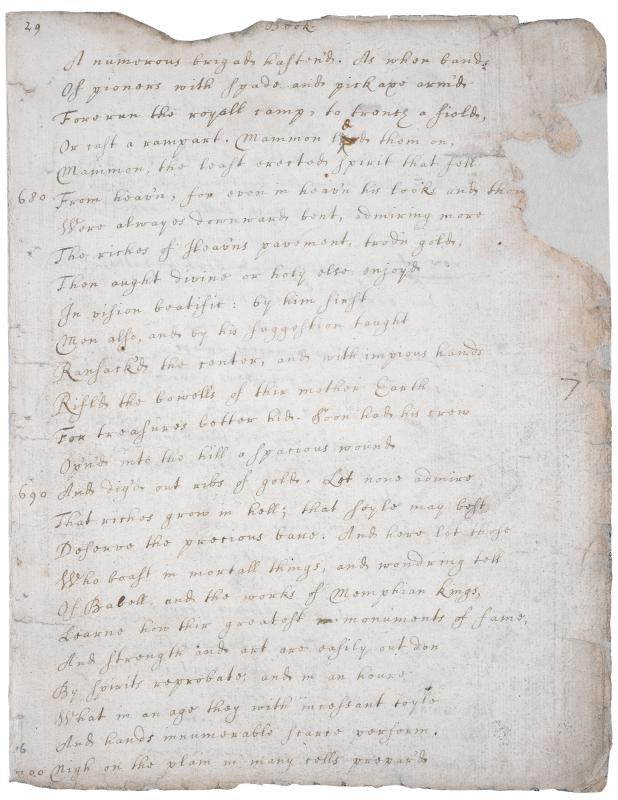 29
Book
A numerous brigad hasten'd. As when bands
Of pioners with spade and pickaxe arm'd
Forerun the royall camp, to trench a field,
Or cast a rampart. Mammon led them on,
Mammon, the least erected spirit that fell
680 From heav'n, for even in heav'n his looks and thou
Were alwayes downward bent, admiring more
The riches of Heav'ns pavement, trod'n gold,
Then aught divine or holy else enjoy'd
In vision beatific: by him first
Men also, and by his suggestion taught
Ransack'd the center, and with impious hands
Rifl'd the bowells of thir mother Earth
7
For treasures better hid. Soon had his crew
Op'n'd into the hill a spacious wound
690 And dig'd out ribs of gold. Let none admire
That riches grow in hell; that soyle may best
Deserve the precious bane. And here let those
Who boast in mortall things, and wondring tell
Of Babell and the works of Memphian kings,
Learne how thir greatest monuments of fame,
And strength and art are easily out don
By spirits reprobate; and in an houre
What in an age they with incessant toyle
And hands innumerable scarce perform.
Nigh on the plain in many cells prepar'd